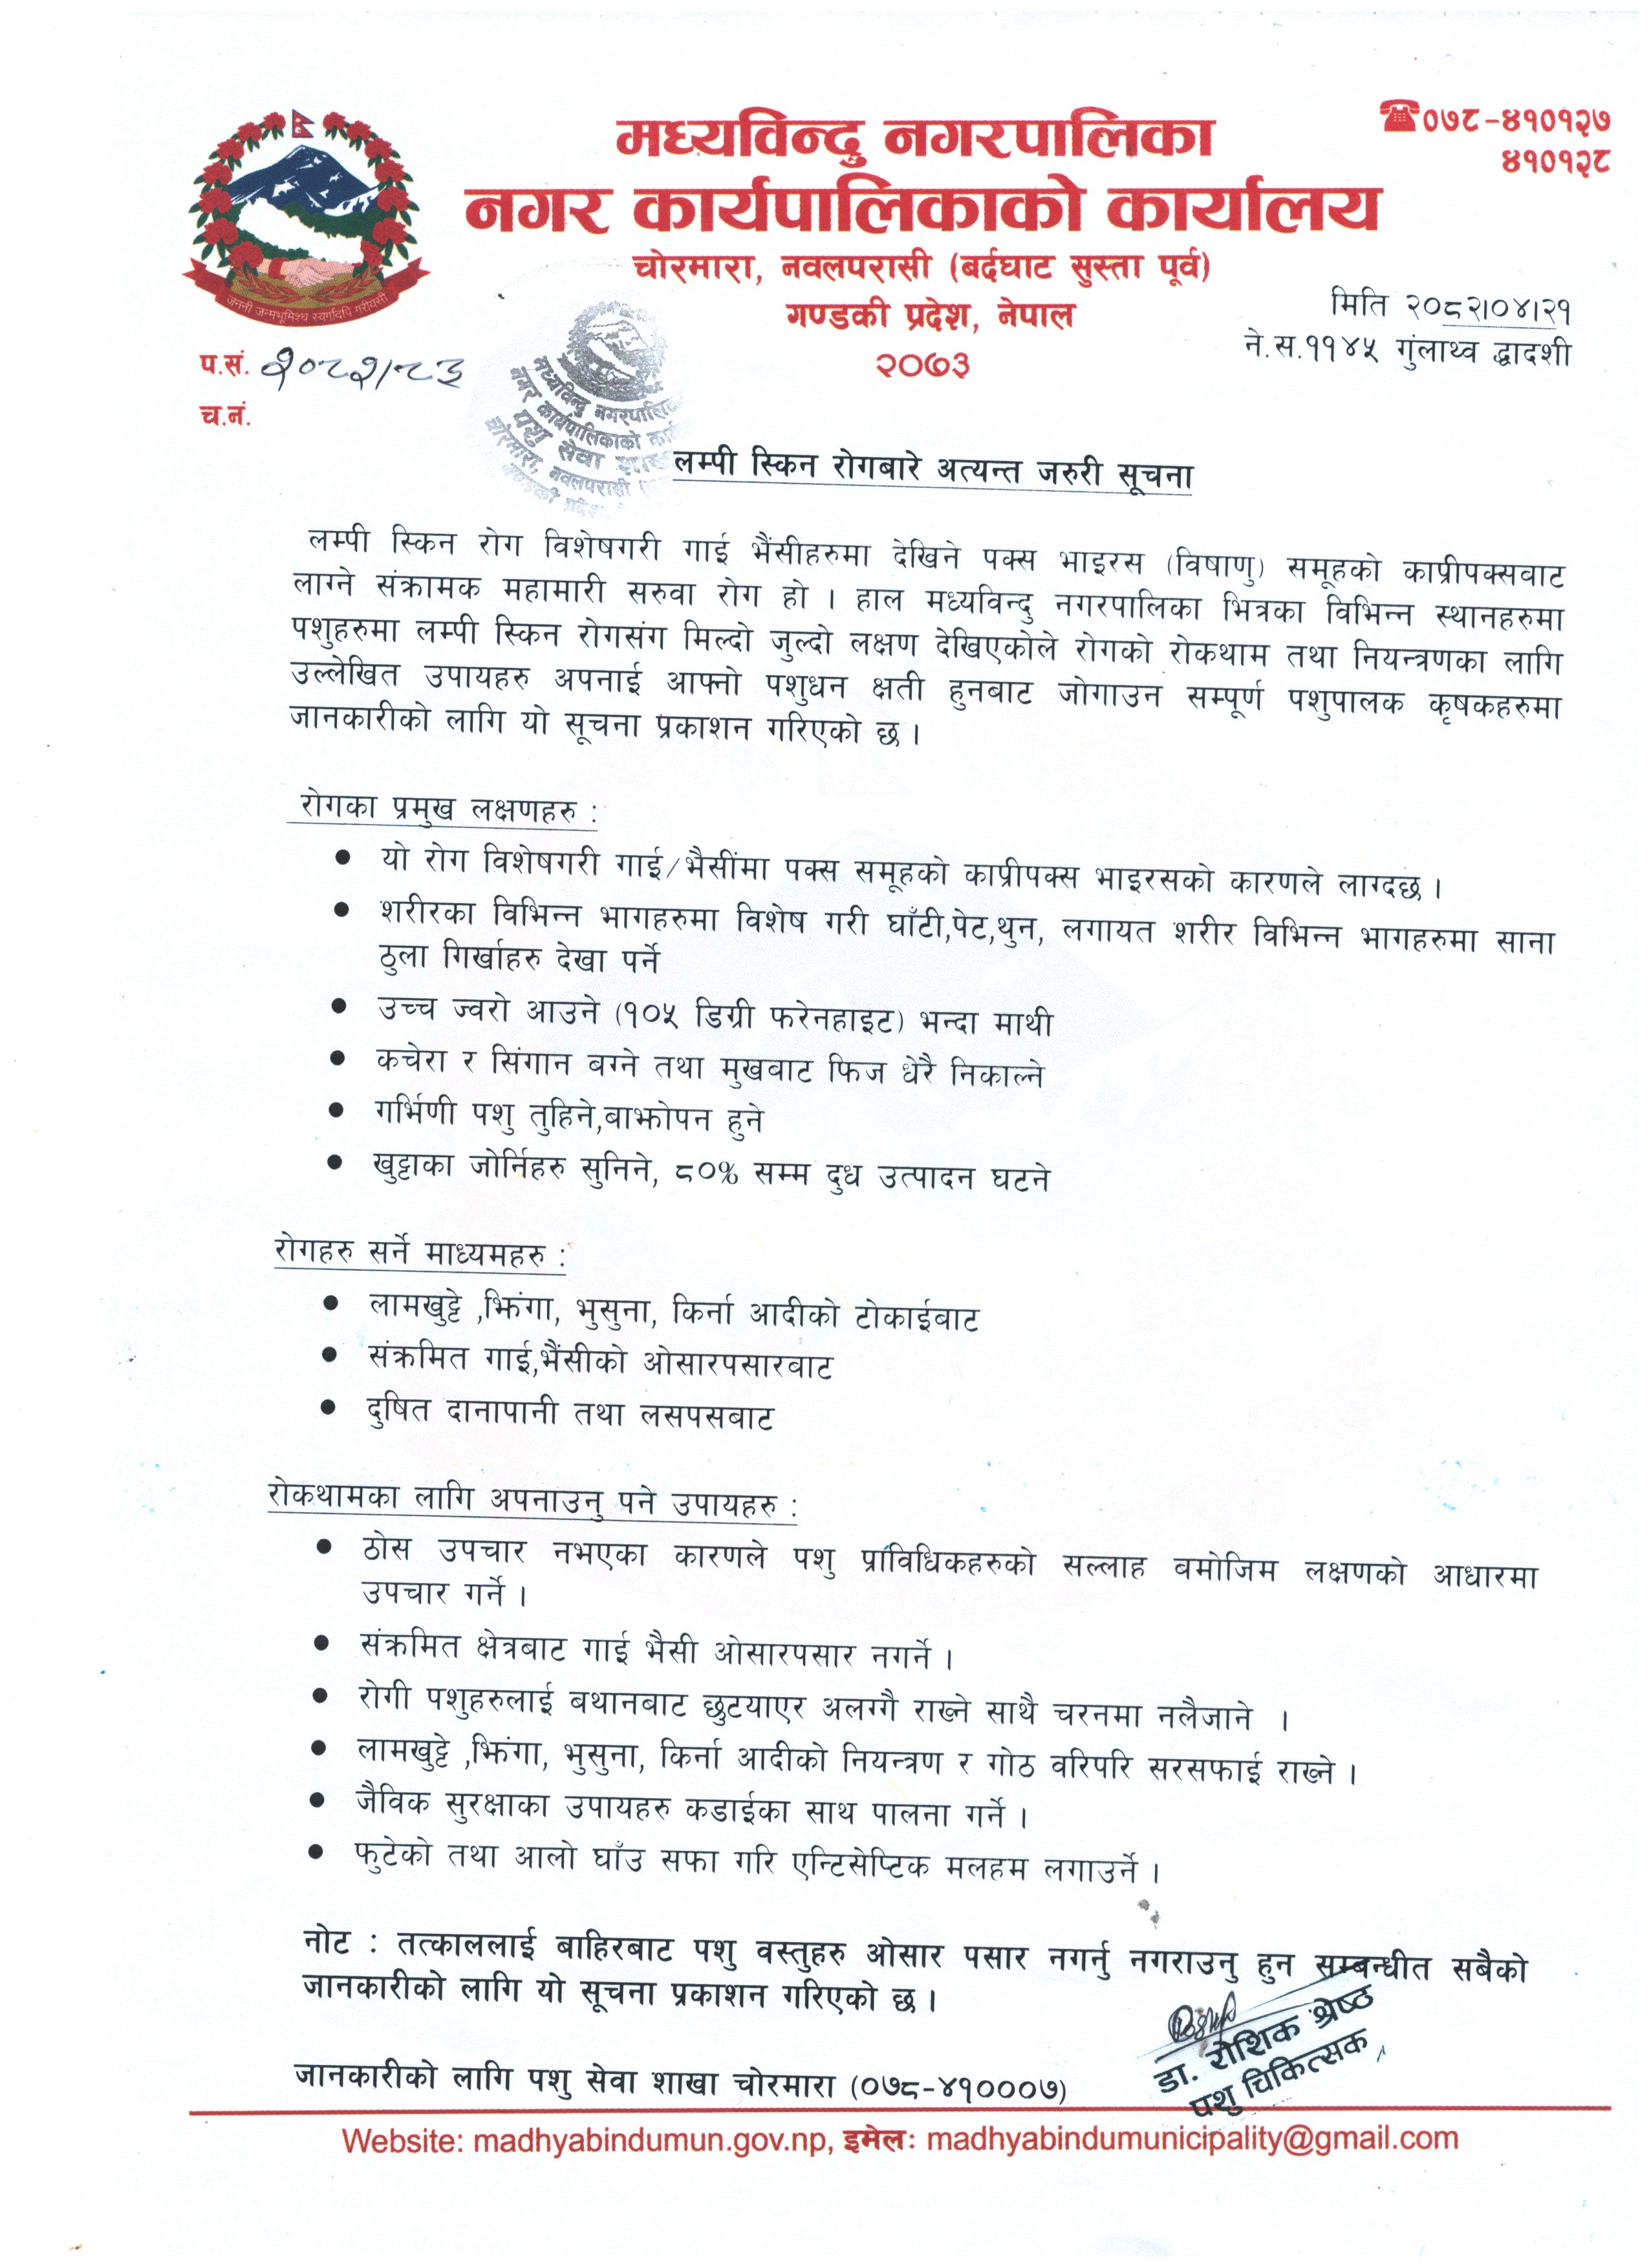 मध्यविन्दु नगरपालिका
नगर कार्यपालिकाको कार्यालय
चोरमारा, नवलपरासी (बर्दघाट सुस्ता पूर्व)
गण्डकी प्रदेश, नेपाल
२०७३
☎०७८-४१०१२७
४१०१२८
जननी जन्मभूमिश्च स्वर्गादपि गरीयसी
मिति २०८२।०४।२१
ने.स.११४५ गुंलाथ्व द्धादशी
प.सं. २०८२/८३
च.नं.
मध्यविन्दु नगरपालिका
नगर कार्यपालिकाको
पशु सेवा शाखा
चोरमारा, नवलपरासी
गण्डकी प्रदेश,
लम्पी स्किन रोगबारे अत्यन्त जरुरी सूचना
लम्पी स्किन रोग विशेषगरी गाई भैंसीहरुमा देखिने पक्स भाइरस (विषाणु) समूहको काप्रीपक्सबाट
लाग्ने संक्रामक महामारी सरुवा रोग हो । हाल मध्यविन्दु नगरपालिका भित्रका विभिन्न स्थानहरुमा
पशुहरुमा लम्पी स्किन रोगसंग मिल्दो जुल्दो लक्षण देखिएकोले रोगको रोकथाम तथा नियन्त्रणका लागि
उल्लेखित उपायहरु अपनाई आफ्नो पशुधन क्षती हुनबाट जोगाउन सम्पूर्ण पशुपालक कृषकहरुमा
जानकारीको लागि यो सूचना प्रकाशन गरिएको छ ।
रोगका प्रमुख लक्षणहरु :
● यो रोग विशेषगरी गाई/भैसींमा पक्स समूहको काप्रीपक्स भाइरसको कारणले लाग्दछ ।
● शरीरका विभिन्न भागहरुमा विशेष गरी घाँटी,पेट,थुन, लगायत शरीर विभिन्न भागहरुमा साना
ठुला गिर्खाहरु देखा पर्ने
● उच्च ज्वरो आउने (१०५ डिग्री फरेनहाइट) भन्दा माथी
● कचेरा र सिंगान बग्ने तथा मुखबाट फिज धेरै निकाल्ने
● गर्भिणी पशु तुहिने,बाझोपन हुने
● खुट्टाका जोर्निहरु सुनिने, ८०% सम्म दुध उत्पादन घटने
रोगहरु सर्ने माध्यमहरु :
● लामखुट्टे ,झिंगा, भुसुना, किर्ना आदीको टोकाईबाट
● संक्रमित गाई,भैंसीको ओसारपसारबाट
● दुषित दानापानी तथा लसपसबाट
रोकथामका लागि अपनाउनु पने उपायहरु :
● ठोस उपचार नभएका कारणले पशु प्राविधिकहरुको सल्लाह बमोजिम लक्षणको आधारमा
उपचार गर्ने ।
● संक्रमित क्षेत्रबाट गाई भैसी ओसारपसार नगर्ने ।
● रोगी पशुहरुलाई बथानबाट छुटयाएर अलग्गै राख्ने साथै चरनमा नलैजाने ।
● लामखुट्टे ,झिंगा, भुसुना, किर्ना आदीको नियन्त्रण र गोठ वरिपरि सरसफाई राख्ने ।
● जैविक सुरक्षाका उपायहरु कडाईका साथ पालना गर्ने ।
● फुटेको तथा आलो घाँउ सफा गरि एन्टिसेप्टिक मलहम लगाउर्ने ।
नोट : तत्काललाई बाहिरबाट पशु वस्तुहरु ओसार पसार नगर्नु नगराउनु हुन सम्बन्धीत सबैको
जानकारीको लागि यो सूचना प्रकाशन गरिएको छ ।
डा. रोशिक श्रेष्ठ
पशु चिकित्सक
जानकारीको लागि पशु सेवा शाखा चोरमारा (०७८-४१०००७)
Website: madhyabindumun.gov.np, इमेल: madhyabindumunicipality@gmail.com